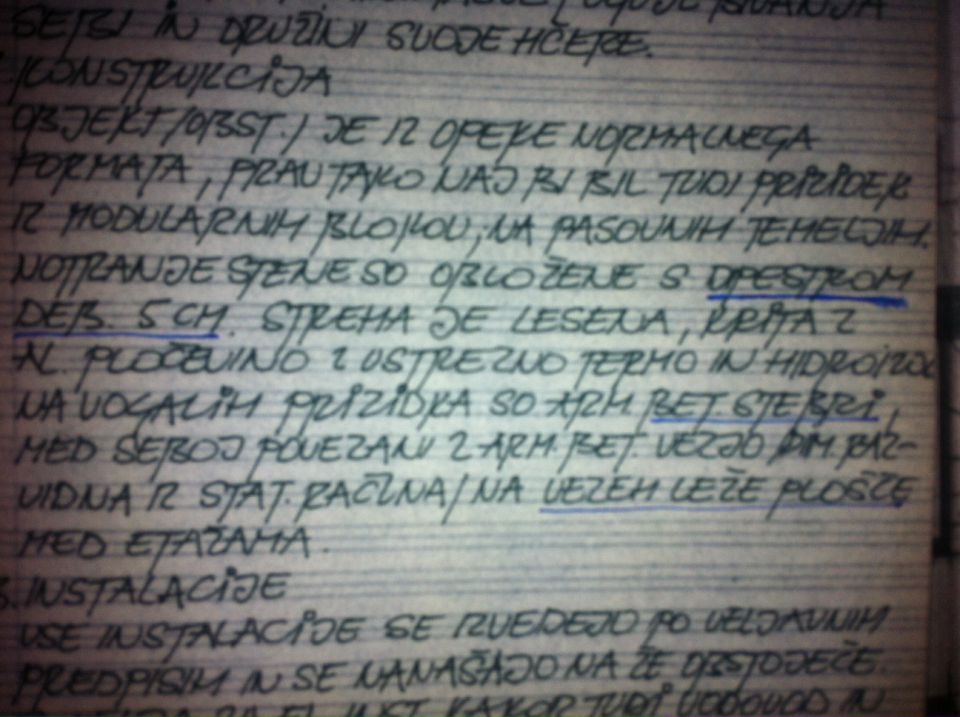 SEBI IN DRUŽINI SVOJE HČERE.
KONSTRUKCIJA
OBJEKT /OBST./ JE IZ OPEKE NORMALNEGA
FORMATA, PRAV TAKO NAJ BI BIL TUDI PRIZIDEK
IZ MODULARNIH BLOKOV, NA PASOVNIH TEMELJIH.
NOTRANJE STENE SO OBLOŽENE S DPESTROM
DEB. 5 CM. STREHA JE LESENA, KRITA Z
AL. PLOČEVINO Z USTREZNO TERMO IN HIDROIZOL
NA VOGALIH PRIZIDKA SO ARM. BET. STEBRI,
MED SEBOJ POVEZANI Z ARM. BET. VEZJO /DIM. RAZ-
VIDNA IZ STAT. RAČUNA/ NA VEZEH LEŽE PLOŠČE
MED ETAŽAMA.
3. INSTALACIJE
VSE INSTALACIJE SE IZVEDEJO PO VELJAVNIH
PREDPISIH IN SE NANAŠAJO NA ŽE OBSTOJEČE.
EL. INST. KAKOR TUDI VODOVOD IN